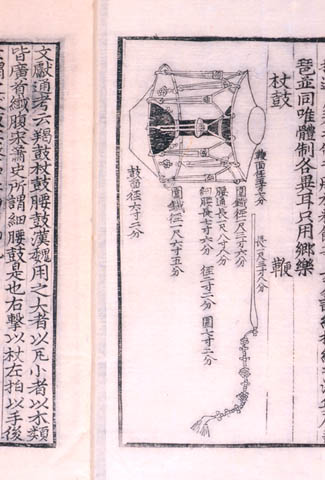 琶並同唯體制各異耳只用鄕樂
杖鼓
鞭
圓鐵徑一尺三寸六分
腰通長一尺八寸八分
細腰長七寸六分 徑二寸二分 圓七寸三分
圓鐵徑一尺六寸五分
鼓面徑六寸二分
文獻通考云羯鼓杖鼓腰鼓漢魏用之大者以瓦小者以木類
皆廣首纖腹宋蕭史所謂細腰鼓是也右擊以杖左拍以手後